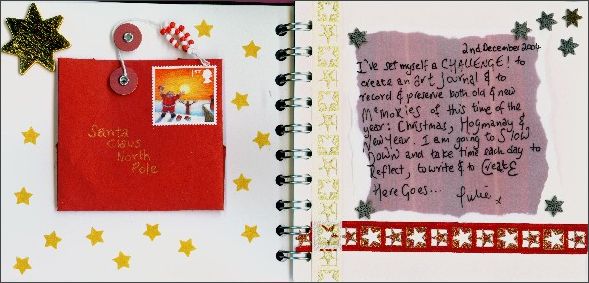 1st
Santa
Claus
North
Pole
2nd December 2004
I've set myself a CHALLENGE! to
create an art journal & to
record & preserve both old & new
Memories of this time of the
year: Christmas, Hogmanay &
New Year. I am going to SLOW
DOWN and take time each day to
Reflect, to write & to Create
Here Goes... Julie x